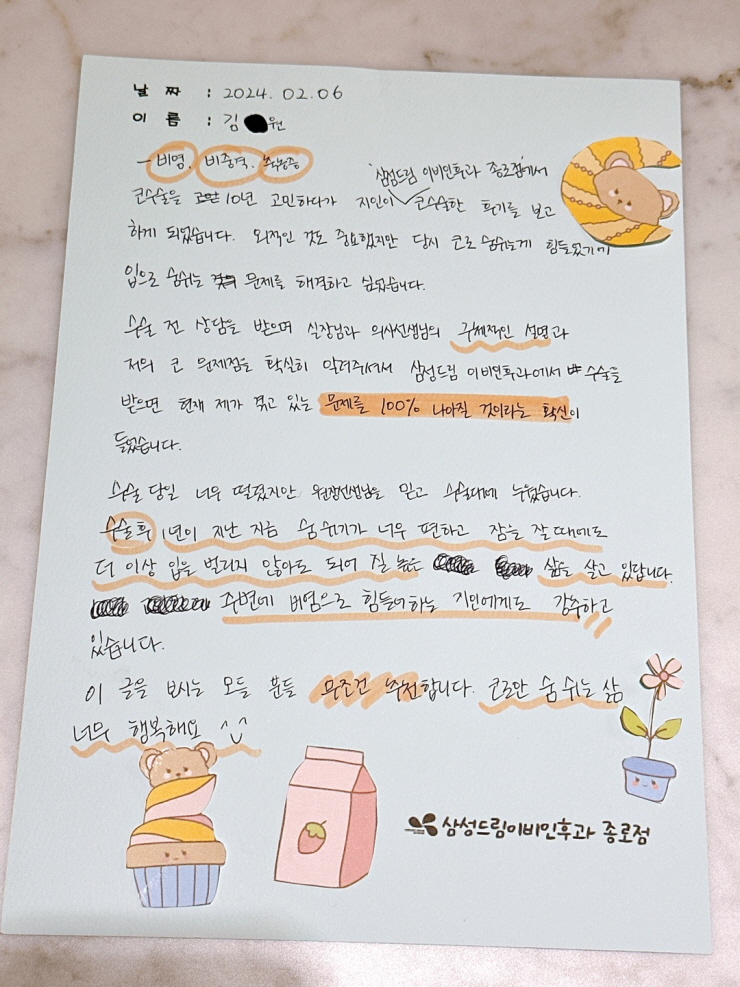 날 짜 : 2024. 02. 06
이 름 : 김 원
- 비염, 비중격, 축농증
'삼성드림 이비인후과 종로점'에서
코수술을 10년 고민하다가 지인이 코수술한 후기를 보고
하게 되었습니다. 외적인 것도 중요했지만 당시 코로 숨쉬는게 힘들었기에
입으로 숨쉬는 문제를 해결하고 싶었습니다.
수술 전 상담을 받으며 실장님과 의사선생님의 구체적인 설명과
저의 코 문제점을 확실히 알려주셔서 삼성드림 이비인후과에서 수술을
받으면 현재 제가 겪고 있는 문제를 100% 나아질 것이라는 확신이
들었습니다.
수술 당일 너무 떨렸지만 원장선생님을 믿고 수술대에 누웠습니다.
수술후 1년이 지난 지금 숨 쉬기가 너무 편하고 잠을 잘 때에도
더 이상 입을 벌리지 않아도 되어 질 높은 삶을 살고 있답니다.
주변에 비염으로 힘들어하는 지인에게도 강추하고
있습니다.
이 글을 보시는 모든 분들 무조건 추천합니다. 코로만 숨 쉬는 삶
너무 행복해요 ^_^
삼성드림이비인후과 종로점